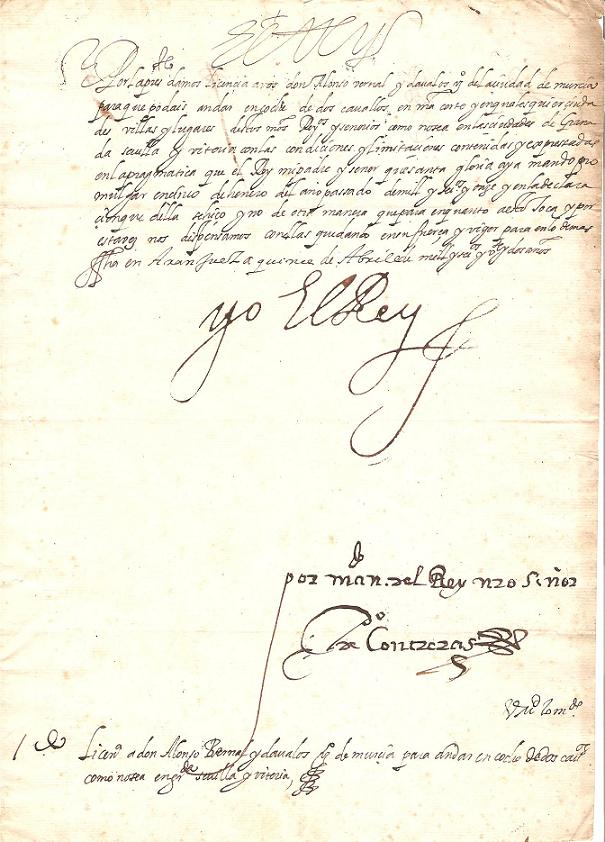 El Rey
Por la press.te damos licencia a vos don Alonso vernal y davalos v.o de la ciudad de murcia
para que podais andar en coche de dos cavallos, en mi corte y en qualesquier ciuda
des villas y lugares destos mos Rey.os y senorios como no sea en las ciudades de Grana
da sevilla y vitoria con las condiciones y limitaciones contenidas y expresadas
en la pragmatica que el Rey mi padre y señor que santa gloria aya mando pro
mulgar en cinco de henero del año pasado de mill y sei.os y onze y en la declara
cion que della se hiço y no de otra manera que para en quanto a esto toca y por
esta vez nos dispensamos con ellas quedando en su fuerça y vigor para en lo demas
fha en Aranjuez a quince de Abril de mill y sei.os y v.te y dos años
yo El Rey
por man.do del Rey nro Señor
P.o de Contreras
Licen.a a don Alonso Bernal y davalos v.o de murcia para andar en coche de dos cava.os
como no sea en gr.da sevilla y vitoria,